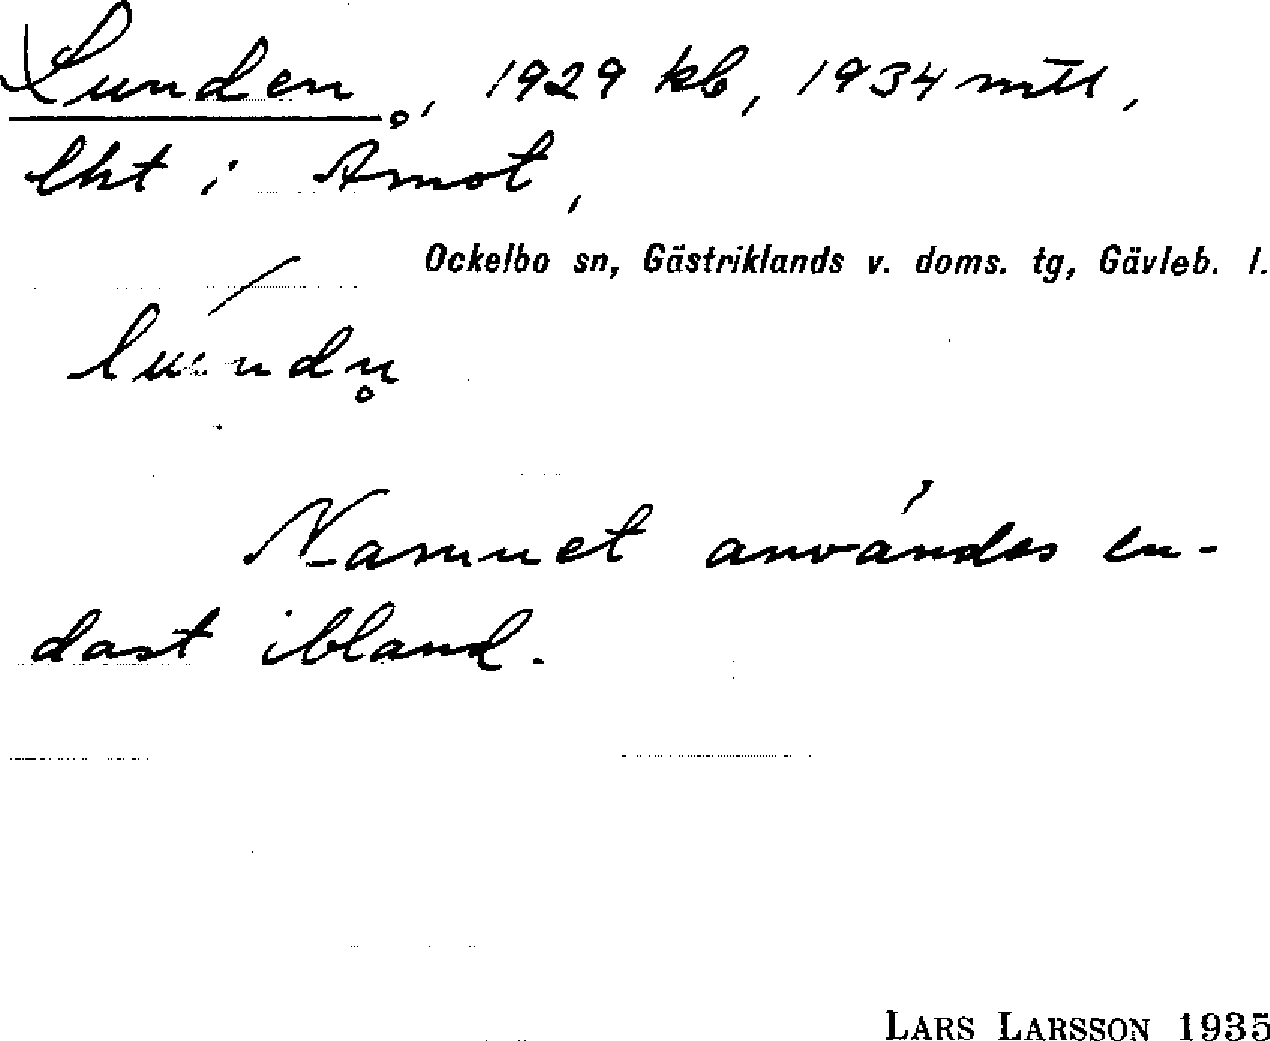 Lunden, 1929 kb, 1934 mtl,
lht i Åmot,
Ockelbo sn, Gästriklands v. doms. tg, Gävleb. l.
Namnet användes en-
dast ibland.
LARS LARSSON 1935